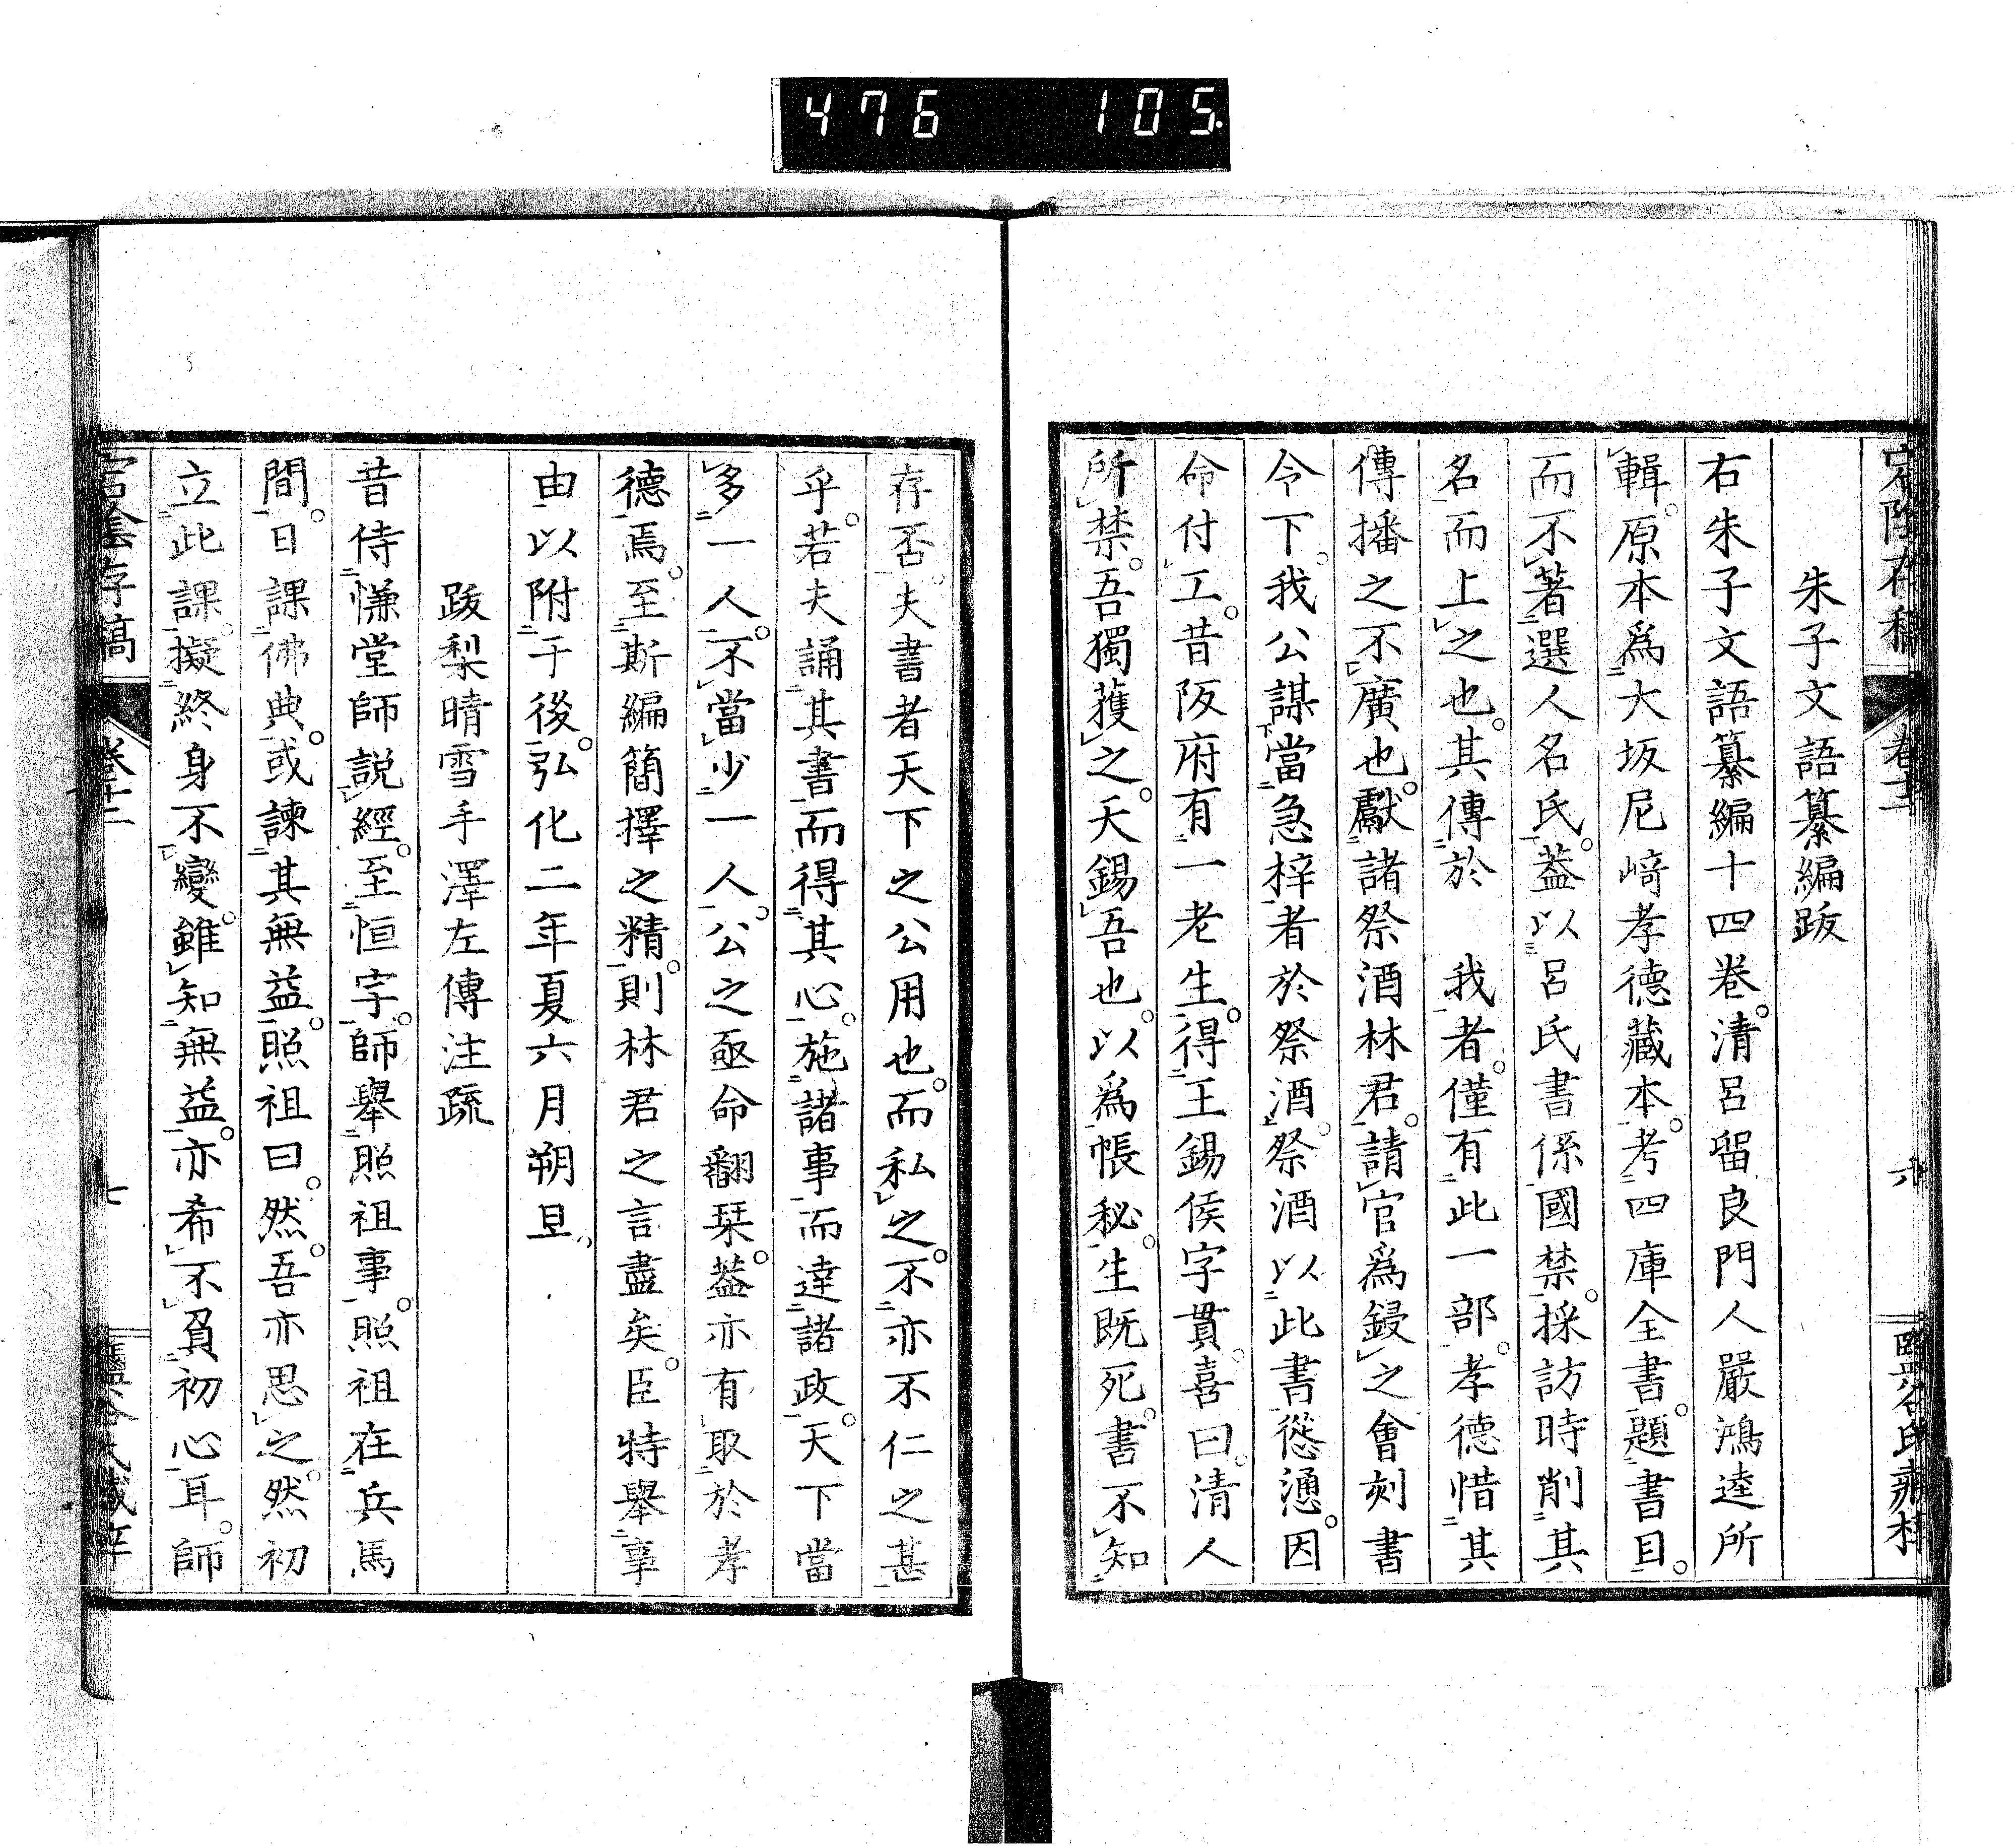 476 105
朱子文語纂編跋
右朱子文語纂編十四卷。清呂留良門人嚴鴻逵所
輯。原本爲大坂尼﨑孝德藏本。考四庫全書。題書目。
而不著選人名氏。葢以呂氏書係國禁。採訪時削其
名而上之也。其傳於　我者。僅有此一部。孝德惜其
傳播之不廣也。獻諸祭酒林君。請官爲鋟之會刻書
令下。我公謀當急梓者於祭酒。祭酒以此書慫慂。因
命付工。昔阪府有一老生。得王錫侯字貫。喜曰。清人
所禁。吾獨獲之。天錫吾也。以爲帳秘。生既死。書不知
存否。夫書者天下之公用也。而私之。不亦不仁之甚
乎。若夫誦其書而得其心。施諸事而達諸政。天下當
多一人。不當少一人。公之亟命翻栞。葢亦有取於孝
德焉。至斯編簡擇之精。則林君之言盡矣。臣特舉事
由以附于後。弘化二年夏六月朔旦。
跋梨晴雪手澤左傳注疏
昔侍慊堂師説經。至恒字。師舉照祖事。照祖在兵馬
間。日課佛典。或諫其無益。照祖曰。然。吾亦思之。然初
立此課。擬終身不變。雖知無益。亦希不負初心耳。師
宕陰存稿
卷十二
七
六